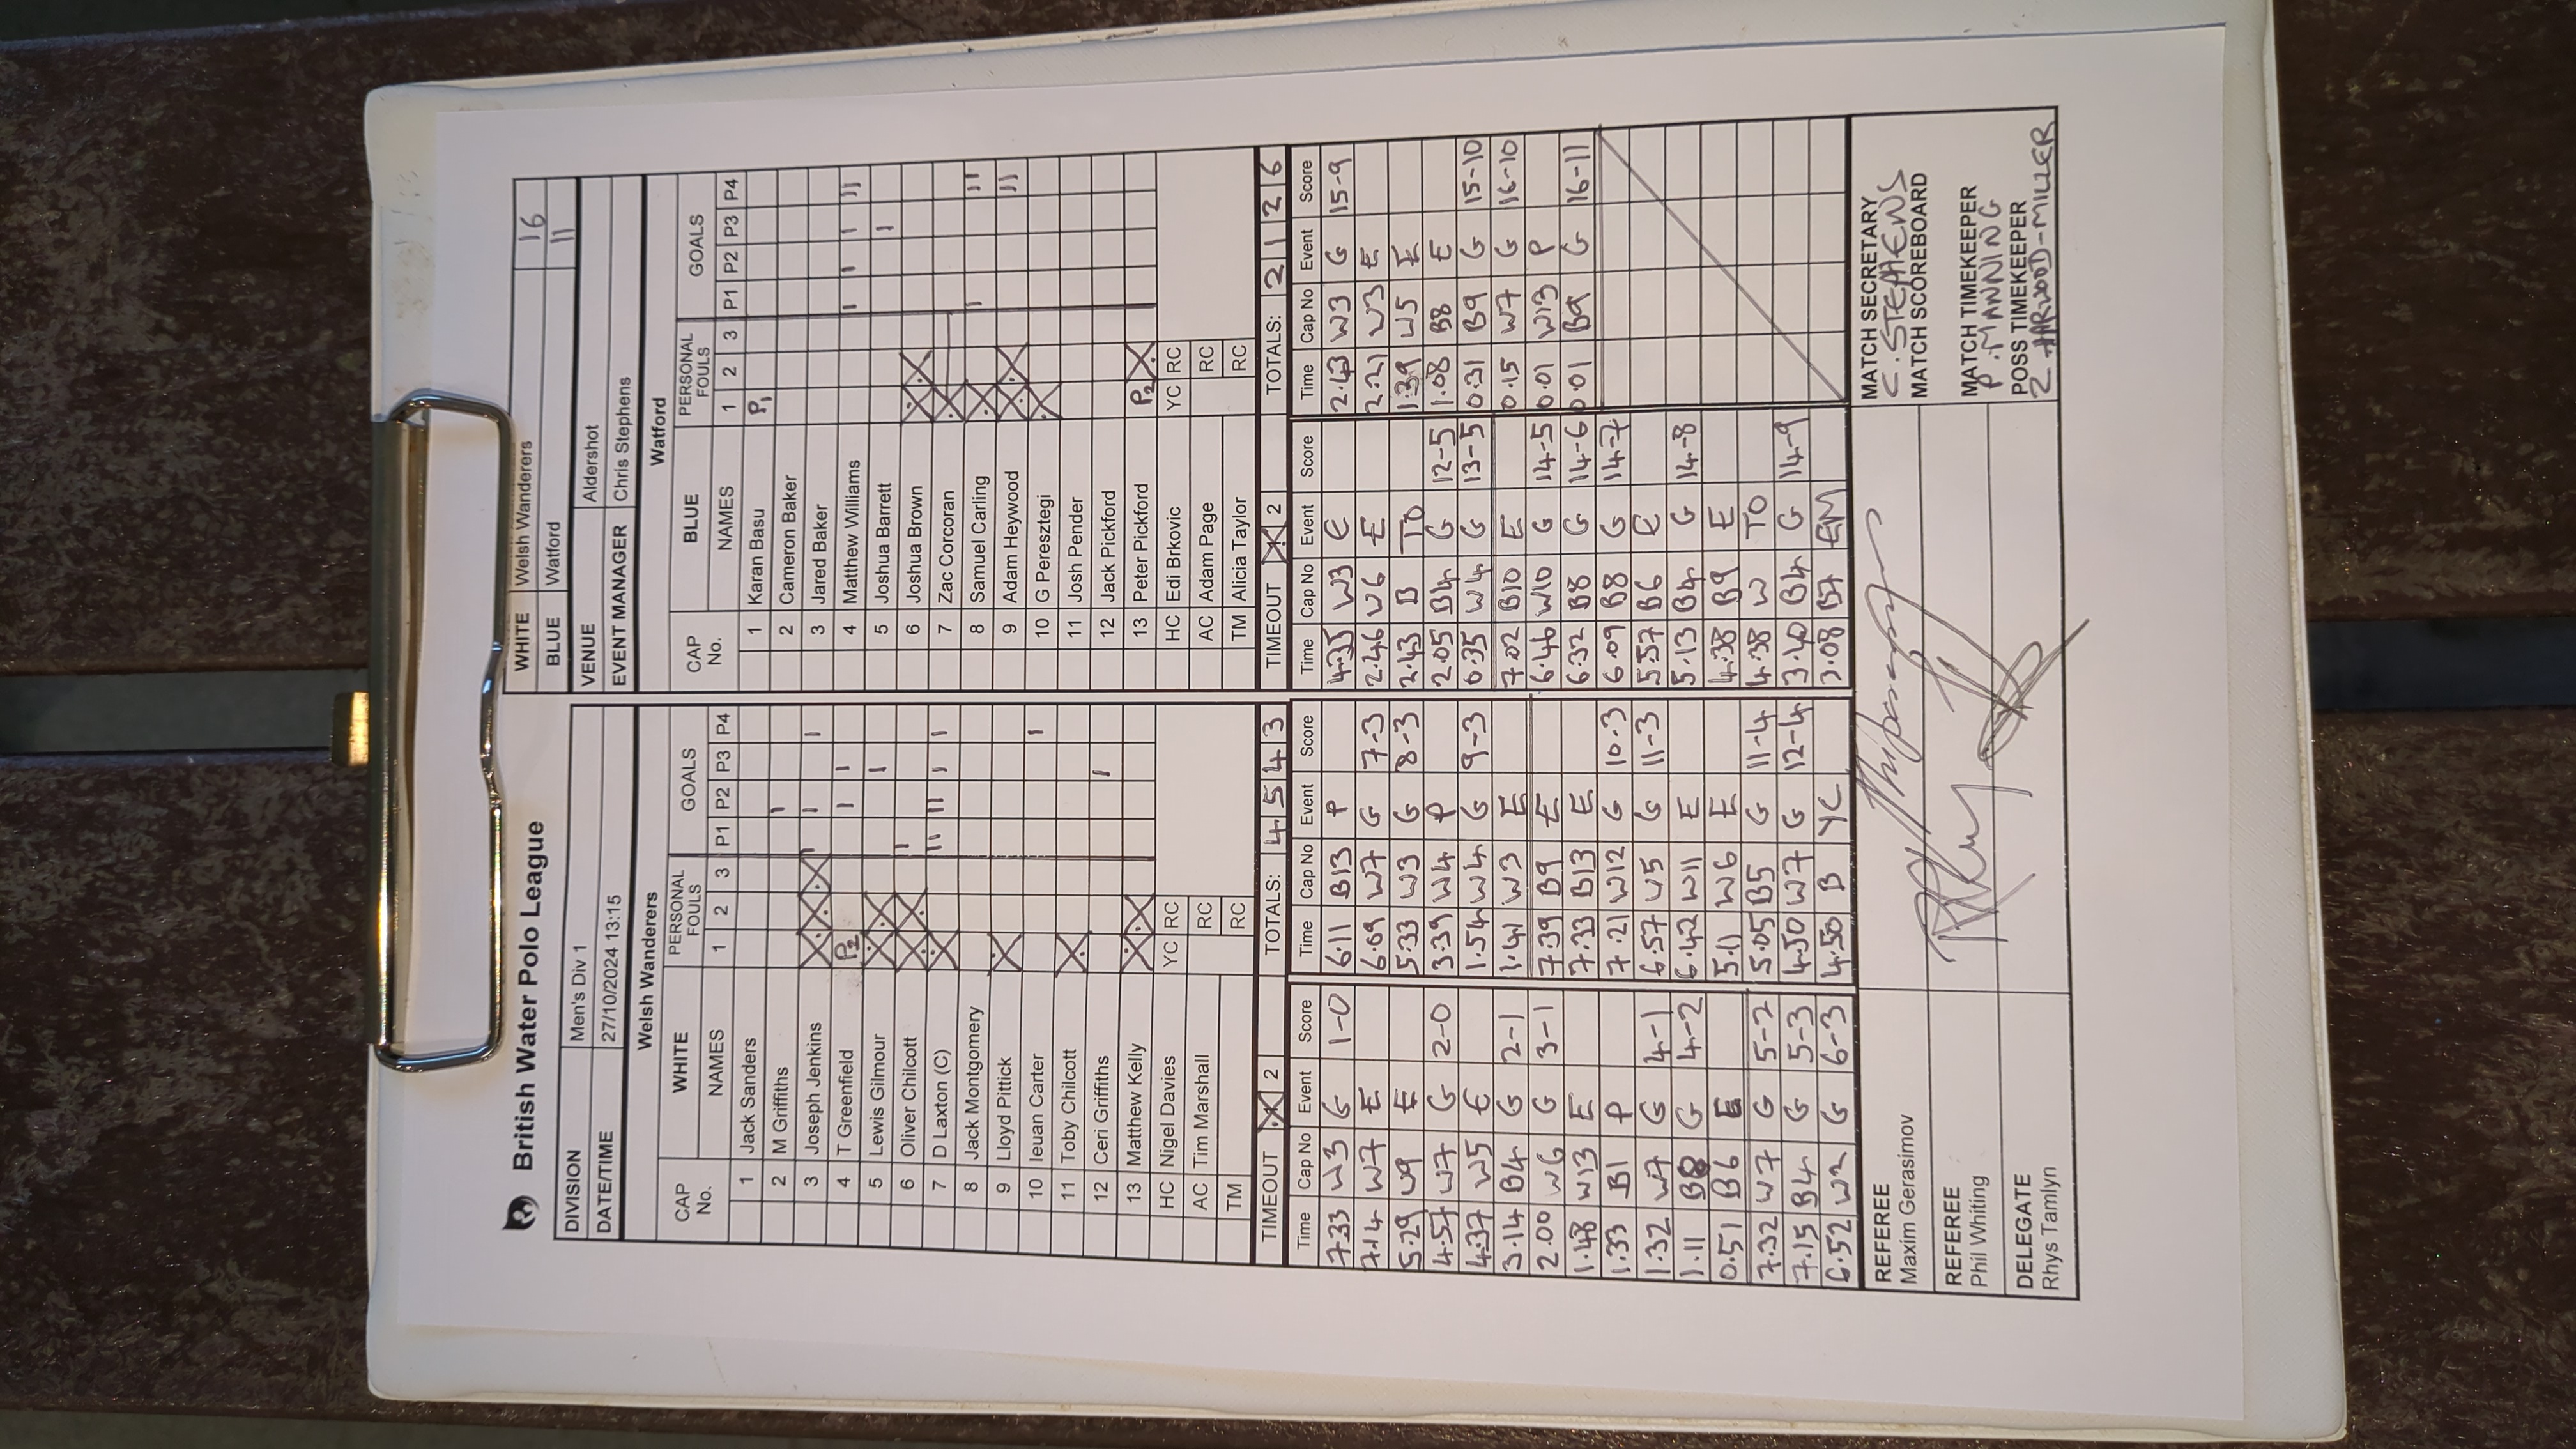 British Water Polo League
WHITE Welsh Wanderers 16
BLUE Watford 11
DIVISION Men's Div 1
DATE/TIME 27/10/2024 13:15
VENUE Aldershot
EVENT MANAGER Chris Stephens
Welsh Wanderers
CAP No. WHITE NAMES PERSONAL FOULS 1 2 3 GOALS P1 P2 P3 P4
1 Jack Sanders
2 M Griffiths I
3 Joseph Jenkins I I I
4 T Greenfield P2 I I
5 Lewis Gilmour I
6 Oliver Chilcott I
7 D Laxton (C) II II I I
8 Jack Montgomery
9 Lloyd Pittick
10 Ieuan Carter I
11 Toby Chilcott
12 Ceri Griffiths I
13 Matthew Kelly
HC Nigel Davies YC RC
AC Tim Marshall RC
TM RC
TIMEOUT 2 TOTALS: 4 5 4 3
Watford
CAP No. BLUE NAMES PERSONAL FOULS 1 2 3 GOALS P1 P2 P3 P4
1 Karan Basu P1
2 Cameron Baker
3 Jared Baker
4 Matthew Williams I I I II
5 Joshua Barrett I
6 Joshua Brown
7 Zac Corcoran
8 Samuel Carling I II
9 Adam Heywood II
10 G Peresztegi
11 Josh Pender
12 Jack Pickford
13 Peter Pickford P2
HC Edi Brkovic YC RC
AC Adam Page RC
TM Alicia Taylor RC
TIMEOUT 2 TOTALS: 2 1 2 6
Time Cap No Event Score
7.33 W3 G 1-0
7.14 W7 E
5.29 W9 E
4.57 W7 G 2-0
4.37 W5 E
3.14 B4 G 2-1
2.00 W6 G 3-1
1.48 W13 E
1.33 B1 P
1.32 W7 G 4-1
1.11 B8 G 4-2
0.51 B6 E
7.32 W7 G 5-2
7.15 B4 G 5-3
6.52 W2 G 6-3
Time Cap No Event Score
6.11 B13 P
6.09 W7 G 7-3
5.33 W3 G 8-3
3.39 W4 P
1.54 W4 G 9-3
1.41 W3 E
7.39 B9 E
7.33 B13 E
7.21 W12 G 10-3
6.57 W5 G 11-3
6.42 W11 E
5.11 W6 E
5.05 B5 G 11-4
4.50 W7 G 12-4
4.50 B YC
Time Cap No Event Score
4.35 W3 E
2.46 W6 E
2.43 B TO
2.05 B4 G 12-5
0.35 W4 G 13-5
7.02 B10 E
6.46 W10 G 14-5
6.32 B8 G 14-6
6.09 B8 G 14-7
5.57 B6 E
5.13 B4 G 14-8
4.38 B9 E
4.38 W TO
3.40 B4 G 14-9
3.08 B7 EM
Time Cap No Event Score
2.43 W3 G 15-9
2.21 W3 E
1.39 W5 E
1.08 B8 E
0.31 B9 G 15-10
0.15 W7 G 16-10
0.01 W13 P
0.01 B9 G 16-11
REFEREE
Maxim Gerasimov
REFEREE
Phil Whiting
DELEGATE
Rhys Tamlyn
MATCH SECRETARY
C. STEPHENS
MATCH SCOREBOARD
MATCH TIMEKEEPER
P. MANNING
POSS TIMEKEEPER
Z HARWOOD-MILLER